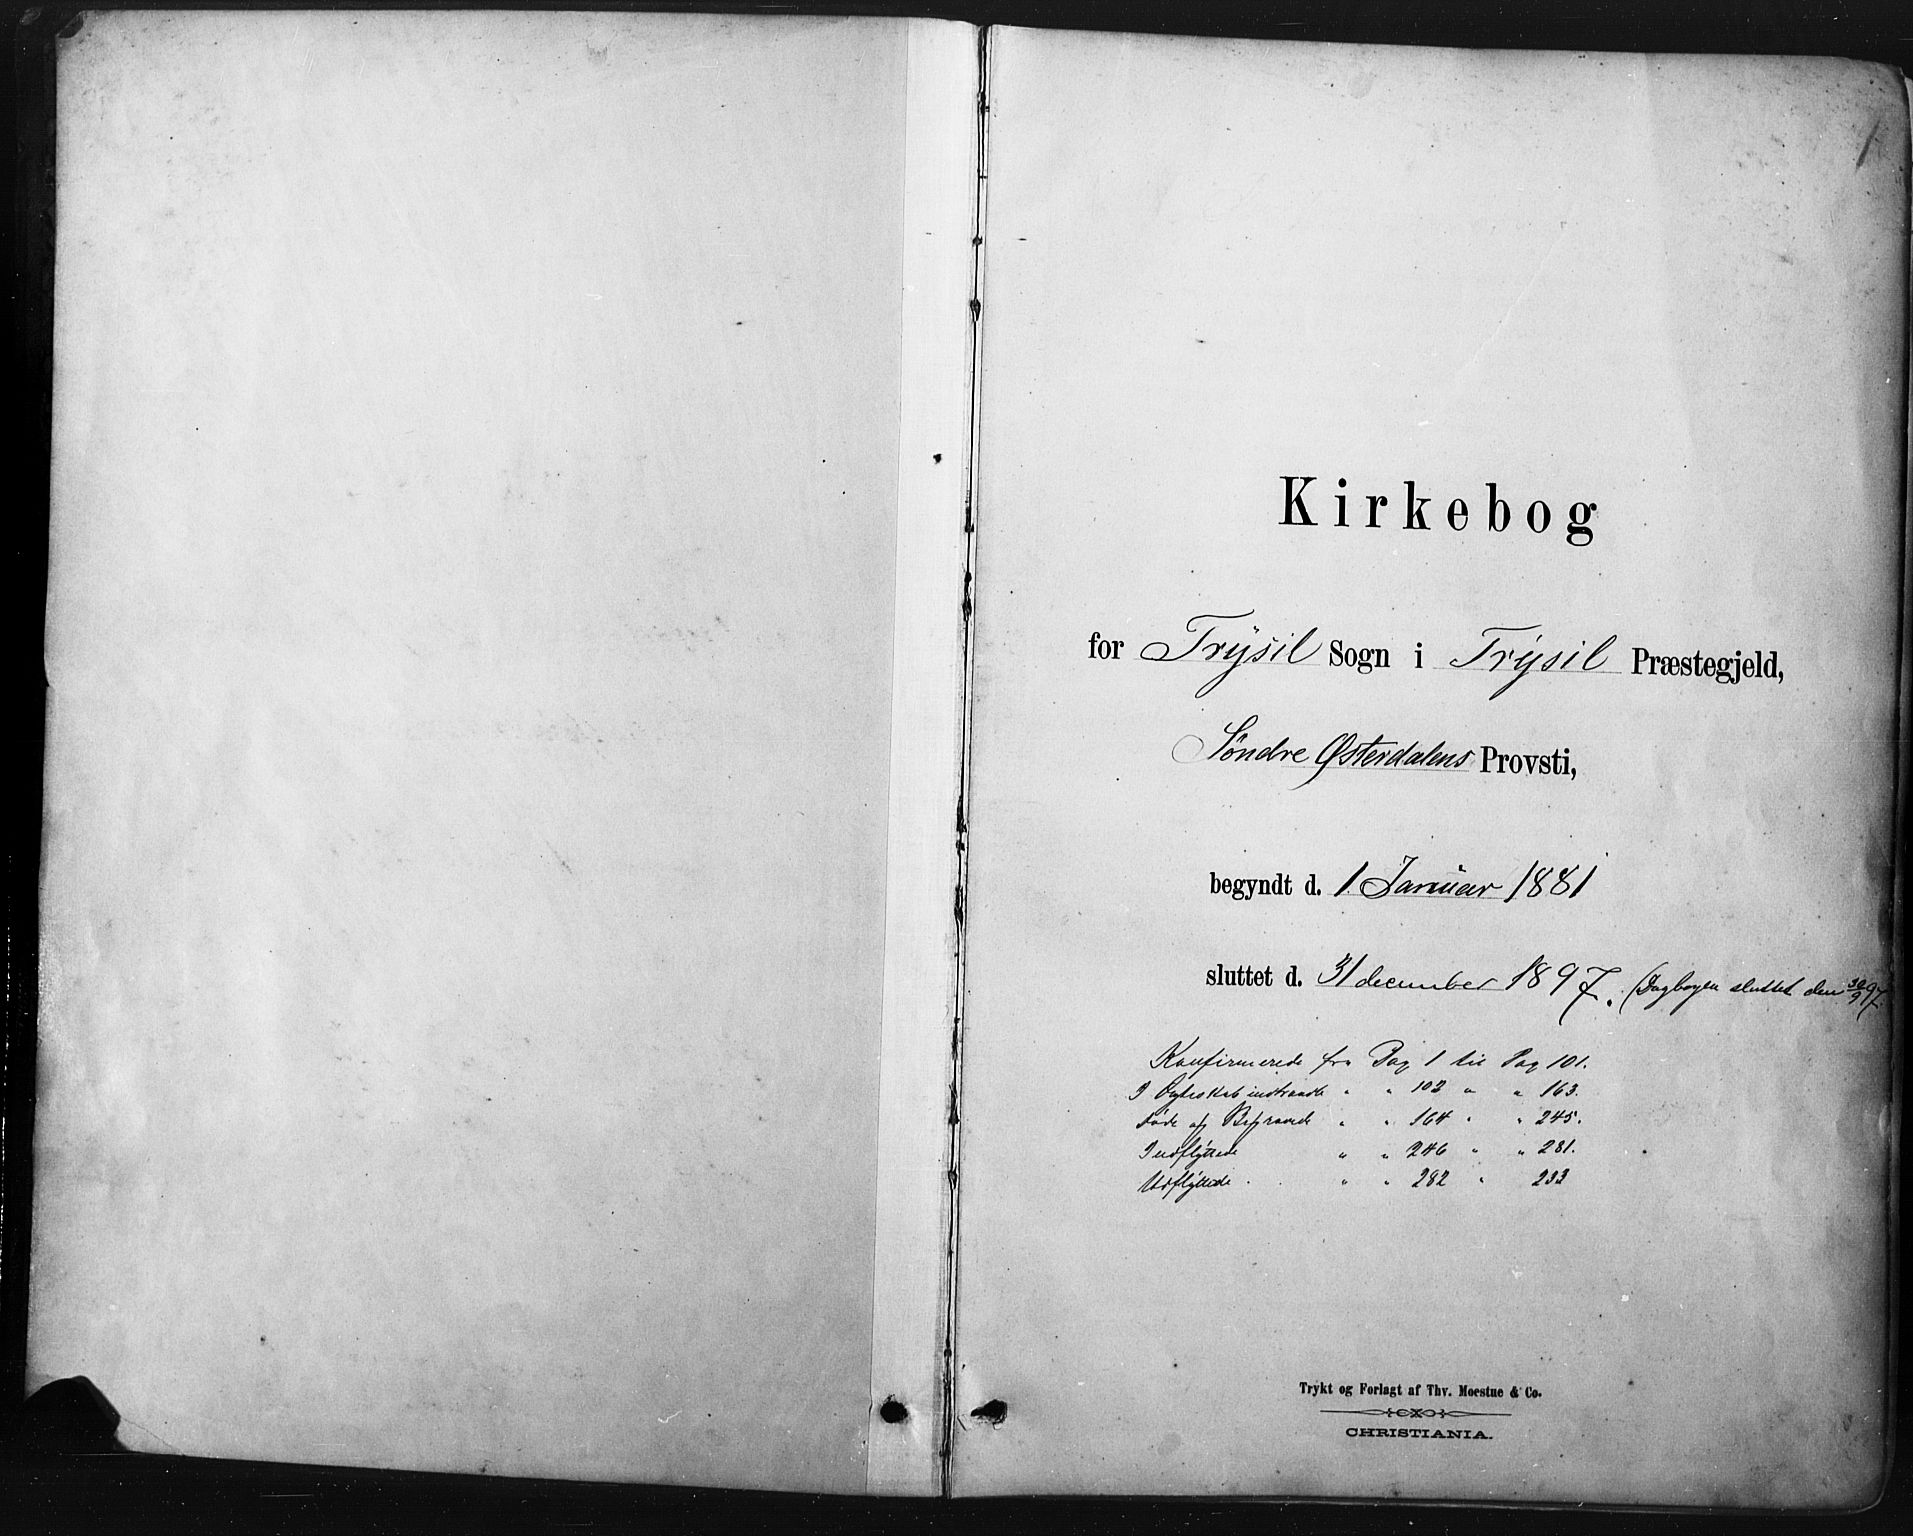 1
Kirkebog
for Trÿsil Sogn i Trÿsil Præstegjeld,
Søndre Østerdalens Provsti,
begyndt d. 1. Januar 1881
sluttet d. 31 december 1897. (Dagbogen sluttet den 30/9 97.
Konfirmerede fra Pag 1 til Pag 101.
I Ægteskab indtraadte " " 102 " " 163.
Døde og Begravede " " 164 " " 245.
Indflÿttede " " 246 " " 281.
Udflÿttede " " 282 " 233
Trykt og Forlagt af Thv. Moestue & Co.
CHRISTIANIA.